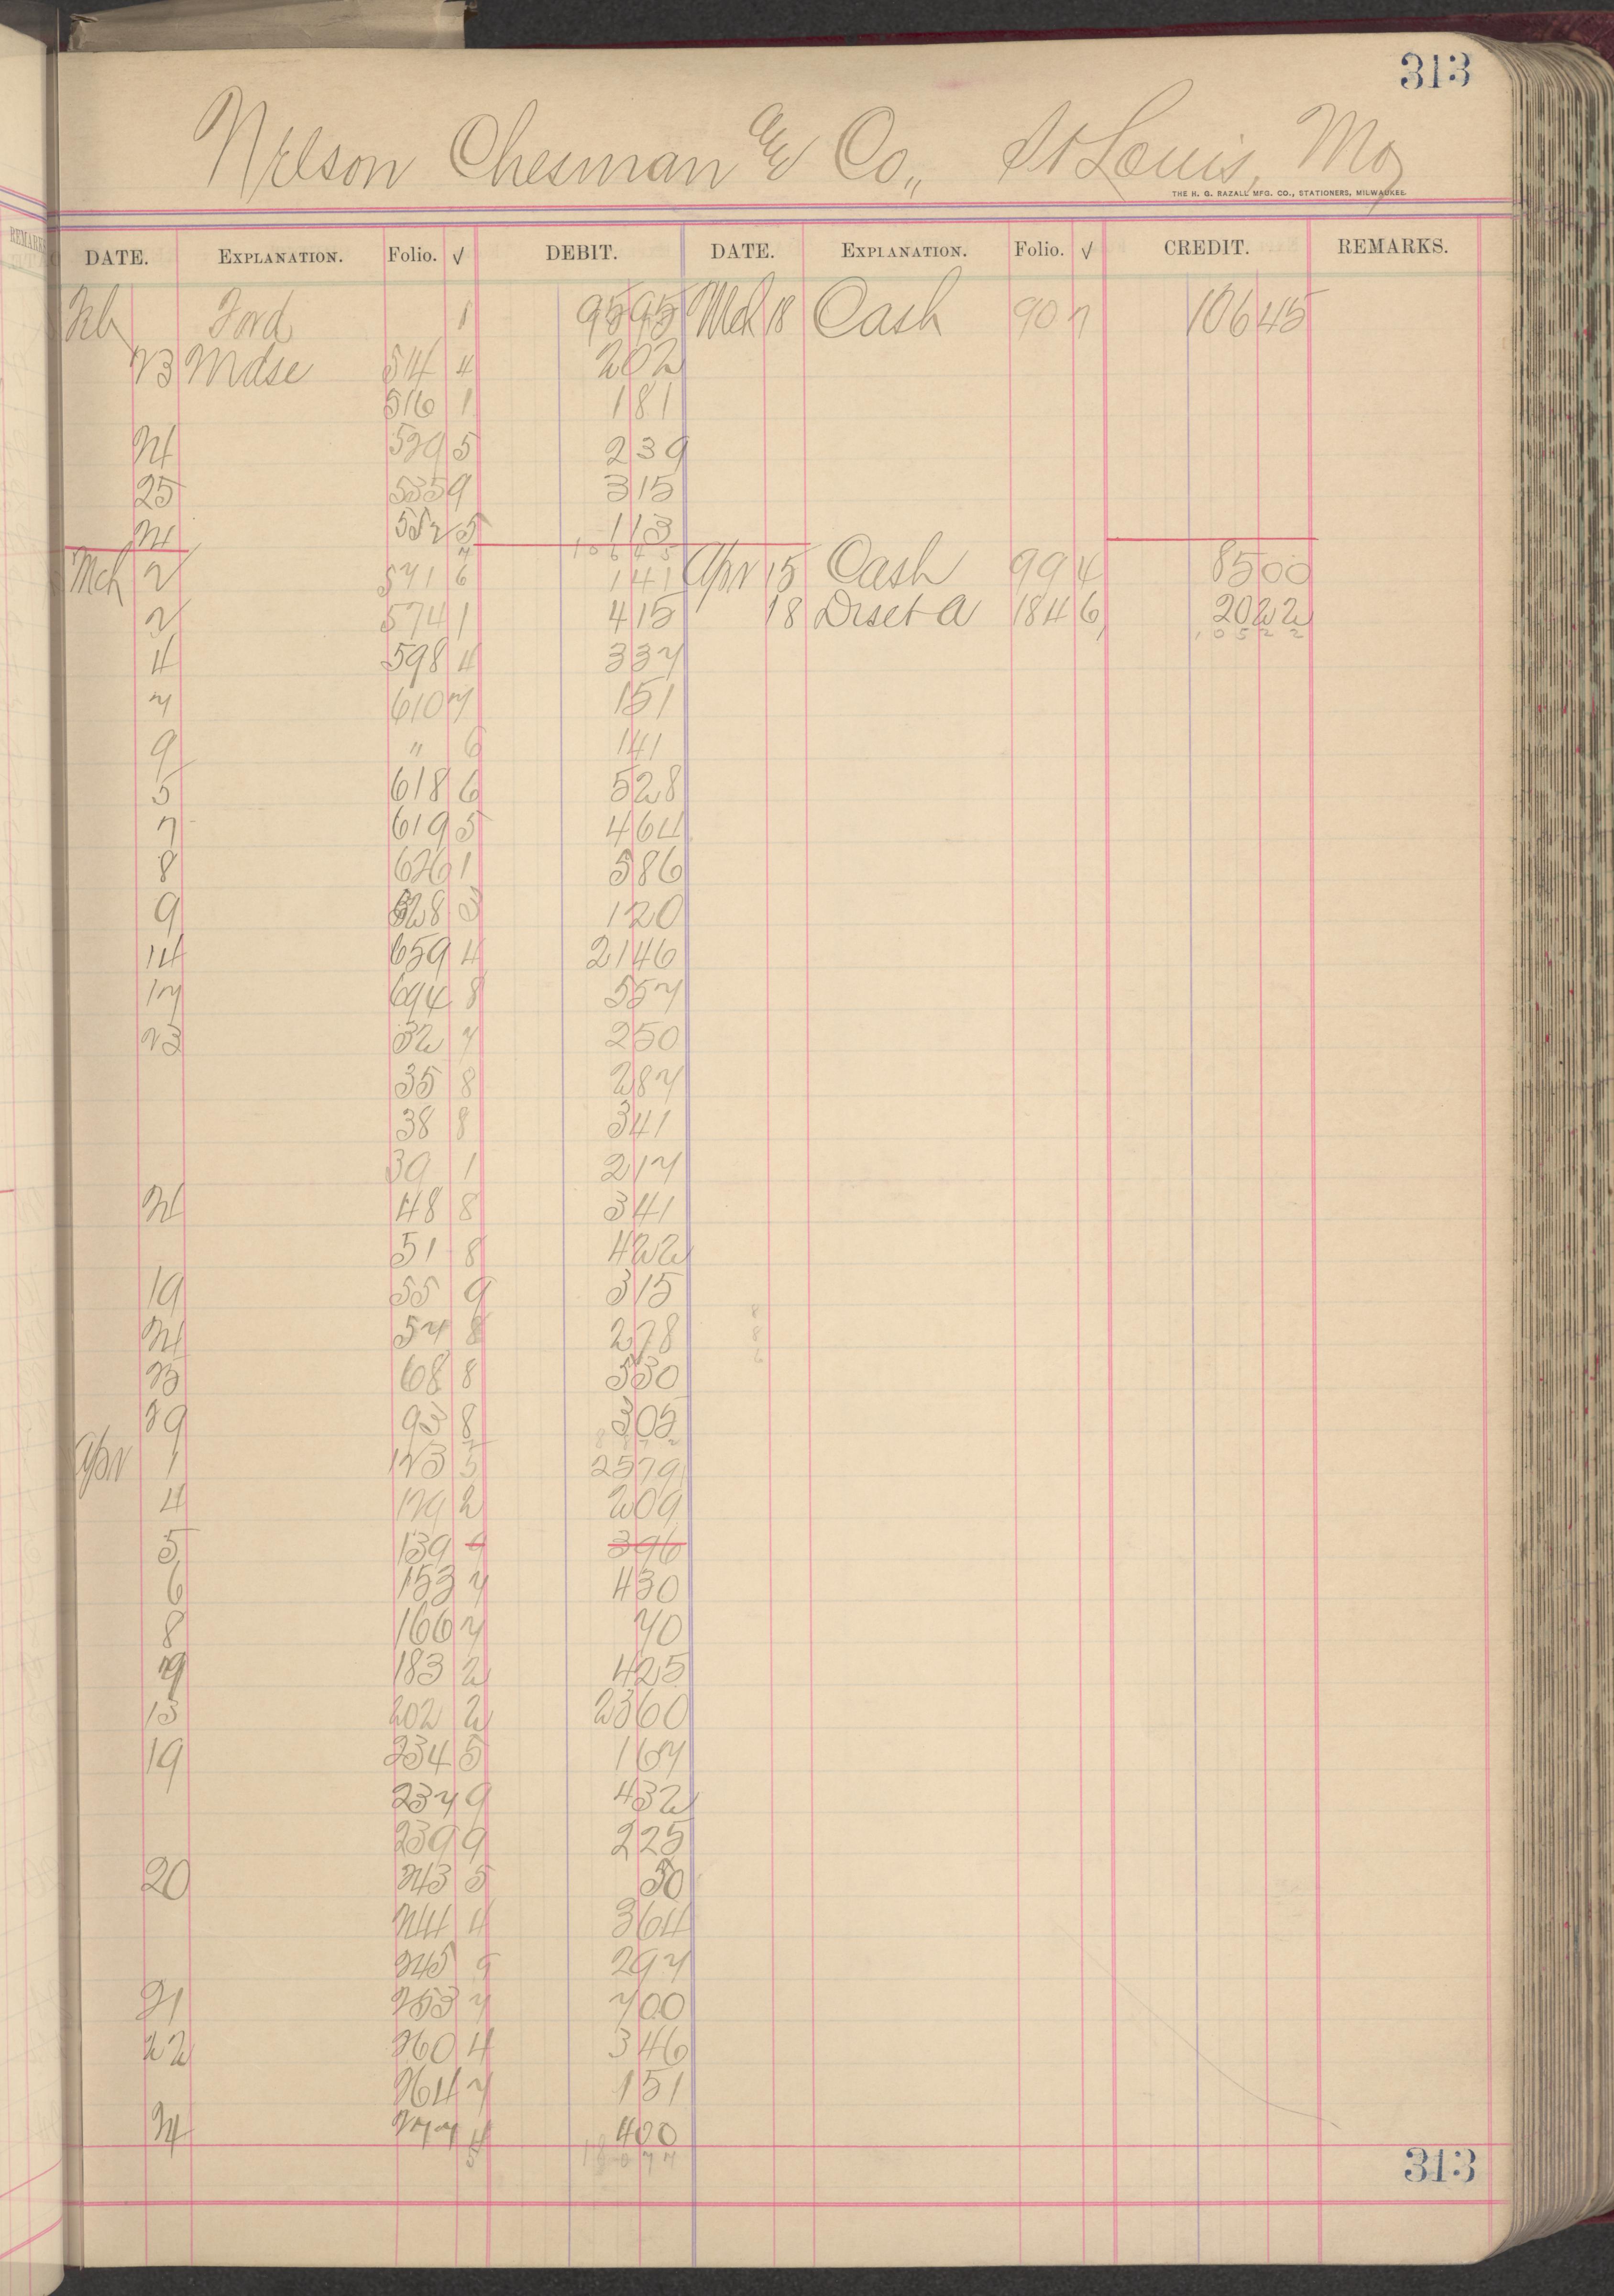 313
Nelson Chesman & Co., St Louis, Mo
THE H. G. RAZALL MFG. CO., STATIONERS, MILWAUKEE.
DATE. EXPLANATION. Folio. √ DEBIT. DATE. EXPLANATION. Folio. √ CREDIT. REMARKS.
Feb Ford 1 9595 Mch 18 Cash 90 7 10645
23 Mdse 514 4 202
516 1 181
24 529 5 239
25 535 9 315
24 552 5 113
10645
Mch 2 571 6 141 Apr 15 Cash 99 4 8500
2 574 1 415 18 Dis et a 184 6 2022
10522
4 598 4 337
7 610 7 151
9 " 6 141
5 618 6 528
7 619 5 464
8 626 1 586
9 628 3 120
14 659 4 2146
17 694 8 557
23 32 7 250
35 8 287
38 8 341
39 1 217
24 48 8 341
51 8 422
19 55 9 315
24 57 8 278
25 68 8 550
29 93 8 305
Apr 1 123 5 2579
4 129 2 209
5 139 9 396
6 153 7 430
8 166 7 70
9 183 2 425
13 202 2 2360
19 234 5 167
237 9 432
239 9 225
20 243 5 50
244 4 364
245 9 297
21 253 7 700
22 260 4 346
264 7 151
24 277 4 400
313